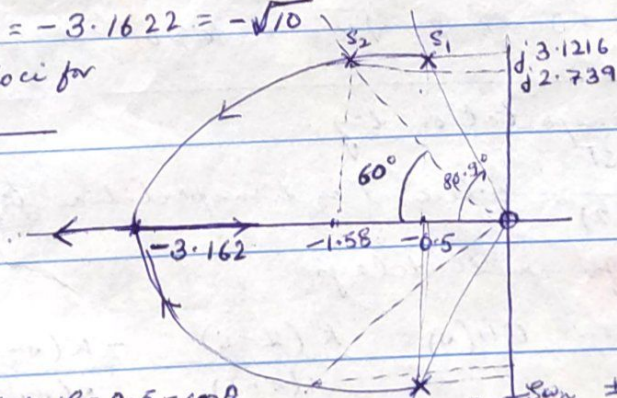 = -3.1622 = -√10
oci for
S2 S1
j3.1216
j2.739
60°
80.9°
-3.162 -1.58 -0.5